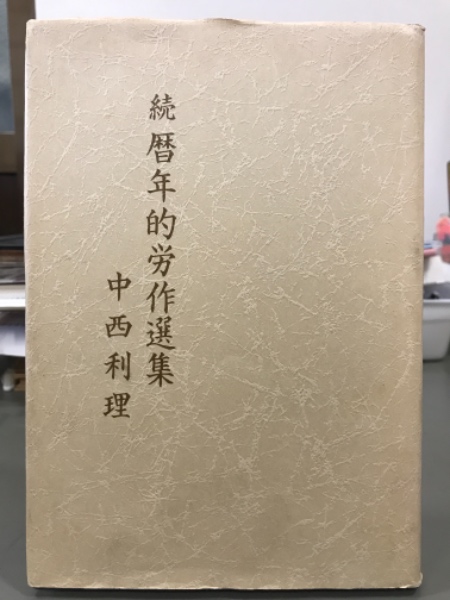 続 暦年的労作選集
中西利理